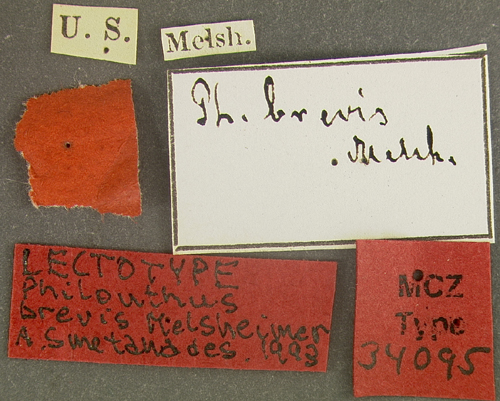 U. S.
Melsh.
Ph. brevis
. Melsh.
LECTOTYPE
Philonthus
brevis Melsheimer
A. Smetana des. 1993
MCZ
Type
34095